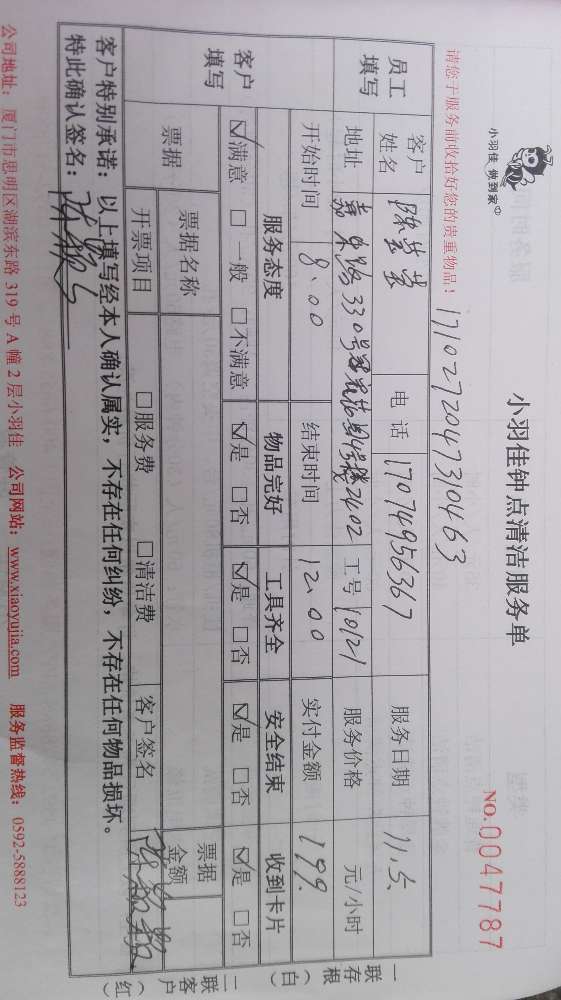 小羽佳 做到家
小羽佳钟点清洁服务单
NO.0047787
请您于服务前收拾好您的贵重物品！
1710272047310463
员工填写
客户姓名
电话 17074956367
服务日期 11.5
地址 嘉禾路330号
2402
工号 10121
服务价格 元/小时
开始时间 8:00
结束时间 12:00
实付金额 199.
客户填写
服务态度 物品完好 工具齐全 安全结束 收到卡片
☑满意 □一般 □不满意 ☑是 □否 ☑是 □否 ☑是 □否 ☑是 □否
票据 票据名称 票据金额
开票项目 □服务费 □清洁费 客户签名
客户特别承诺：以上填写经本人确认属实，不存在任何纠纷，不存在任何物品损坏。
特此确认签名：
公司地址：厦门市思明区湖滨东路 319 号 A 幢 2 层小羽佳 公司网站：www.xiaoyujia.com 服务监督热线：0592-5888123
一联存根（白）
二联客户（红）